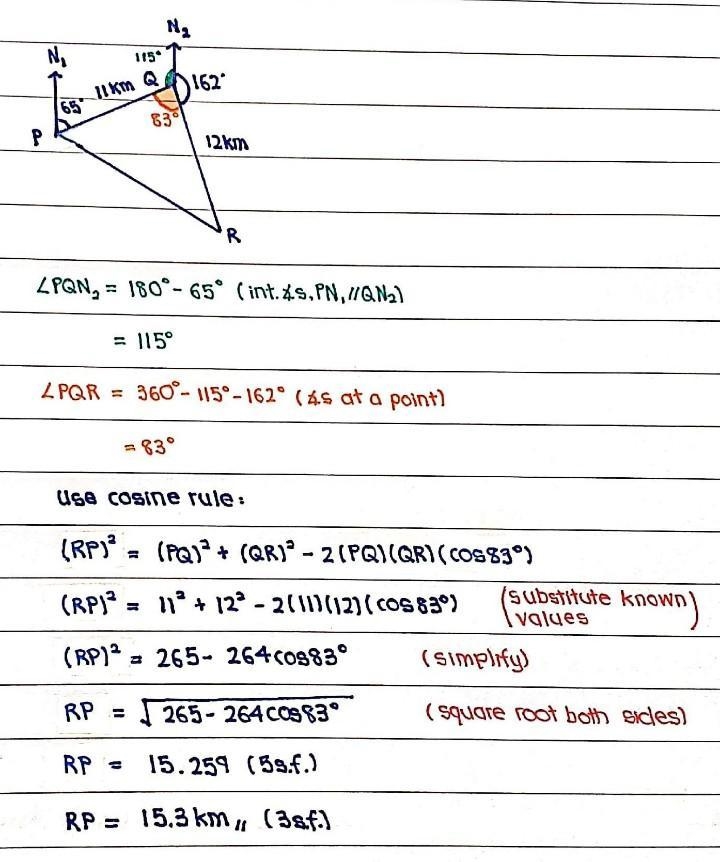 N₂
N₁
115°
11km Q 162°
65°
83°
P
12km
R
∠PQN₂ = 180° - 65° (int.∡s, PN, //QN₂)
= 115°
∠PQR = 360° - 115° - 162° (∡s at a point)
= 83°
Use cosine rule:
(RP)² = (PQ)² + (QR)² - 2(PQ)(QR)(cos83°)
(RP)² = 11² + 12² - 2(11)(12)(cos83°) (substitute known values)
(RP)² = 265 - 264cos83° (simplify)
RP = √265 - 264cos83° (square root both sides)
RP = 15.259 (5s.f.)
RP = 15.3km,, (3s.f.)